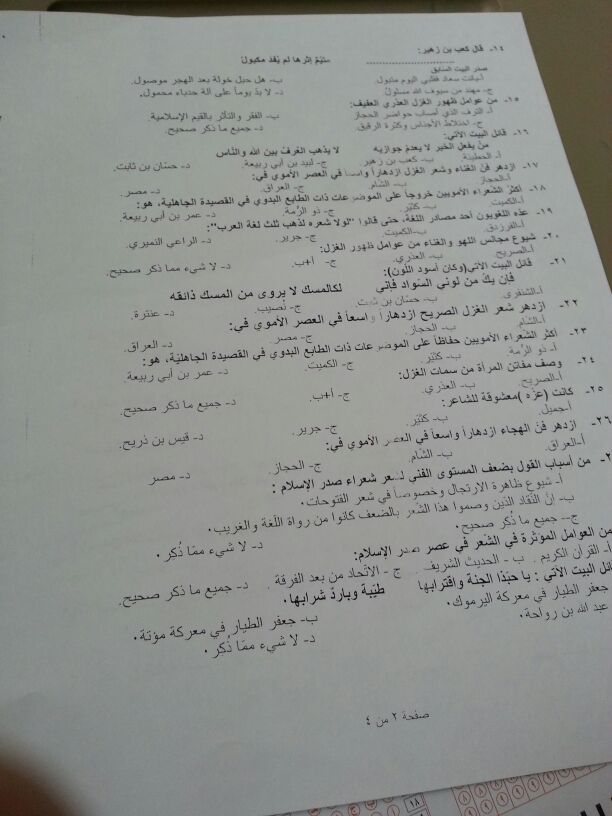 ١٤- قال كعب بن زهير:
........................ متيّمٌ إثرها لم يُفْدَ مكبولُ
صدر البيت السابق
أ- بانت سعاد فقلبي اليوم متبول. ب- هل حبل خولة بعد الهجر موصول.
ج- مهند من سيوف الله مسلول. د- لا بدّ يوماً على آلة حدباء محمول.
١٥- من عوامل ظهور الغزل العذري العفيف:
أ- الترف الذي أصاب حواضر الحجاز ب- الفقر والتأثر بالقيم الإسلامية.
ج- اختلاط الأجناس وكثرة الرقيق. د- جميع ما ذكر صحيح.
١٦- قائل البيت الآتي:
من يفعل الخير لا يعدم جوازيه لا يذهب العُرفُ بين الله والنّاس
أ- الحطيئة ب- كعب بن زهير. ج- لبيد بن أبي ربيعة. د- حسّان بن ثابت.
١٧- ازدهر فنّ الغناء وشعر الغزل ازدهاراً واسعاً في العصر الأموي في:
أ-الحجاز. ب- الشّام. ج- العراق. د- مصر.
١٨- أكثر الشعراء الأمويين خروجاً على الموضوعات ذات الطابع البدوي في القصيدة الجاهلية، هو:
أ-الكميت. ب- كثيّر. ج- ذو الرُّمة. د- عمر بن أبي ربيعة.
١٩- عدّه اللغويون أحد مصادر اللغة، حتى قالوا "لولا شعره لذهب ثلث لغة العرب":
أ-الفرزدق. ب-الكميت. ج- جرير. د- الراعي النميري.
٢٠- شيوع مجالس اللهو والغناء من عوامل ظهور الغزل:
أ-الصريح ب- العذري. ج- أ+ب. د- لا شيء مما ذكر صحيح.
٢١- قائل البيت الآتي(وكان أسود اللّون):
فإن يكُ من لوني السّواد فإنّي لكالمسك لا يروى من المسك ذائقه
أ-الشنفرى. ب- حسّان بن ثابت. ج- نُصيب. د- عنترة.
٢٢- ازدهر شعر الغزل الصريح ازدهاراً واسعاً في العصر الأموي في:
أ-الشّام. ب- الحجاز. ج- مصر. د- العراق.
٢٣- أكثر الشعراء الأمويين حفاظاً على الموضوعات ذات الطابع البدوي في القصيدة الجاهليّة، هو:
أ- ذو الرُّمة. ب- كثيّر. ج- الكميت. د- عمر بن أبي ربيعة.
٢٤- وصف مفاتن المرأة من سمات الغزل:
أ-الصريح. ب- العذري. ج- أ+ب. د- جميع ما ذكر صحيح.
٢٥- كانت (عزّة )معشوقة للشاعر:
أ-جميل. ب- كثيّر. ج- جرير. د- قيس بن ذريح.
٢٦- ازدهر فنّ الهجاء ازدهاراً واسعاً في العصر الأموي في:
أ-العراق. ب- الشّام. ج- الحجاز. د- مصر
من أسباب القول بضعف المستوى الفنّي لشعر شعراء صدر الإسلام :
أ- شيوع ظاهرة الارتجال وخصوصاً في شعر الفتوحات.
ب- إنّ النّقاد الذين وصموا هذا الشّعر بالضعف كانوا من رواة اللّغة والغريب.
ج-- جميع ما ذُكر صحيح. د- لا شيء ممّا ذُكِر.
من العوامل المؤثرة في الشّعر في عصر صدر الإسلام:
أ- القرآن الكريم. ب - الحديث الشريف. ج - الاتّحاد من بعد الفرقة. د- جميع ما ذكر صحيح.
البيت الآتي : يا حبّذا الجنّة واقترابها طيّبة وباردٌ شرابها.
جعفر الطيار في معركة اليرموك. ب- جعفر الطيار في معركة مؤتة.
عبد الله بن رواحة. د- لا شيء ممّا ذُكِر.
صفحة ٢ من ٤
١٨